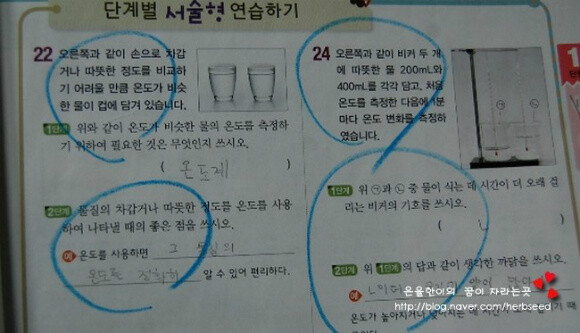 단계별 서술형 연습하기
22 오른쪽과 같이 손으로 차갑
거나 따뜻한 정도를 비교하
기 어려울 만큼 온도가 비슷
한 물이 컵에 담겨 있습니다.
1단계 위와 같이 온도가 비슷한 물의 온도를 측정하
기 위하여 필요한 것은 무엇인지 쓰시오.
( 온도계 )
2단계 물질의 차갑거나 따뜻한 정도를 온도를 사용
하여 나타낼 때의 좋은 점을 쓰시오.
예 온도를 사용하면 그 물질의
온도를 정확히 알 수 있어 편리하다.
24 오른쪽과 같이 비커 두 개
에 따뜻한 물 200mL와
400mL를 각각 담고, 처음
온도를 측정한 다음에 1분
마다 온도 변화를 측정하
였습니다.
㉠ ㉡
1단계 위 ㉠과 ㉡ 중 물이 식는 데 시간이 더 오래 걸
리는 비커의 기호를 쓰시오.
( ㄴ )
2단계 위 1단계의 답과 같이 생각한 까닭을 쓰시오.
예
온도가 높아지거나
은율한이의 꿈이 자라는곳
http://blog.naver.com/herbseed